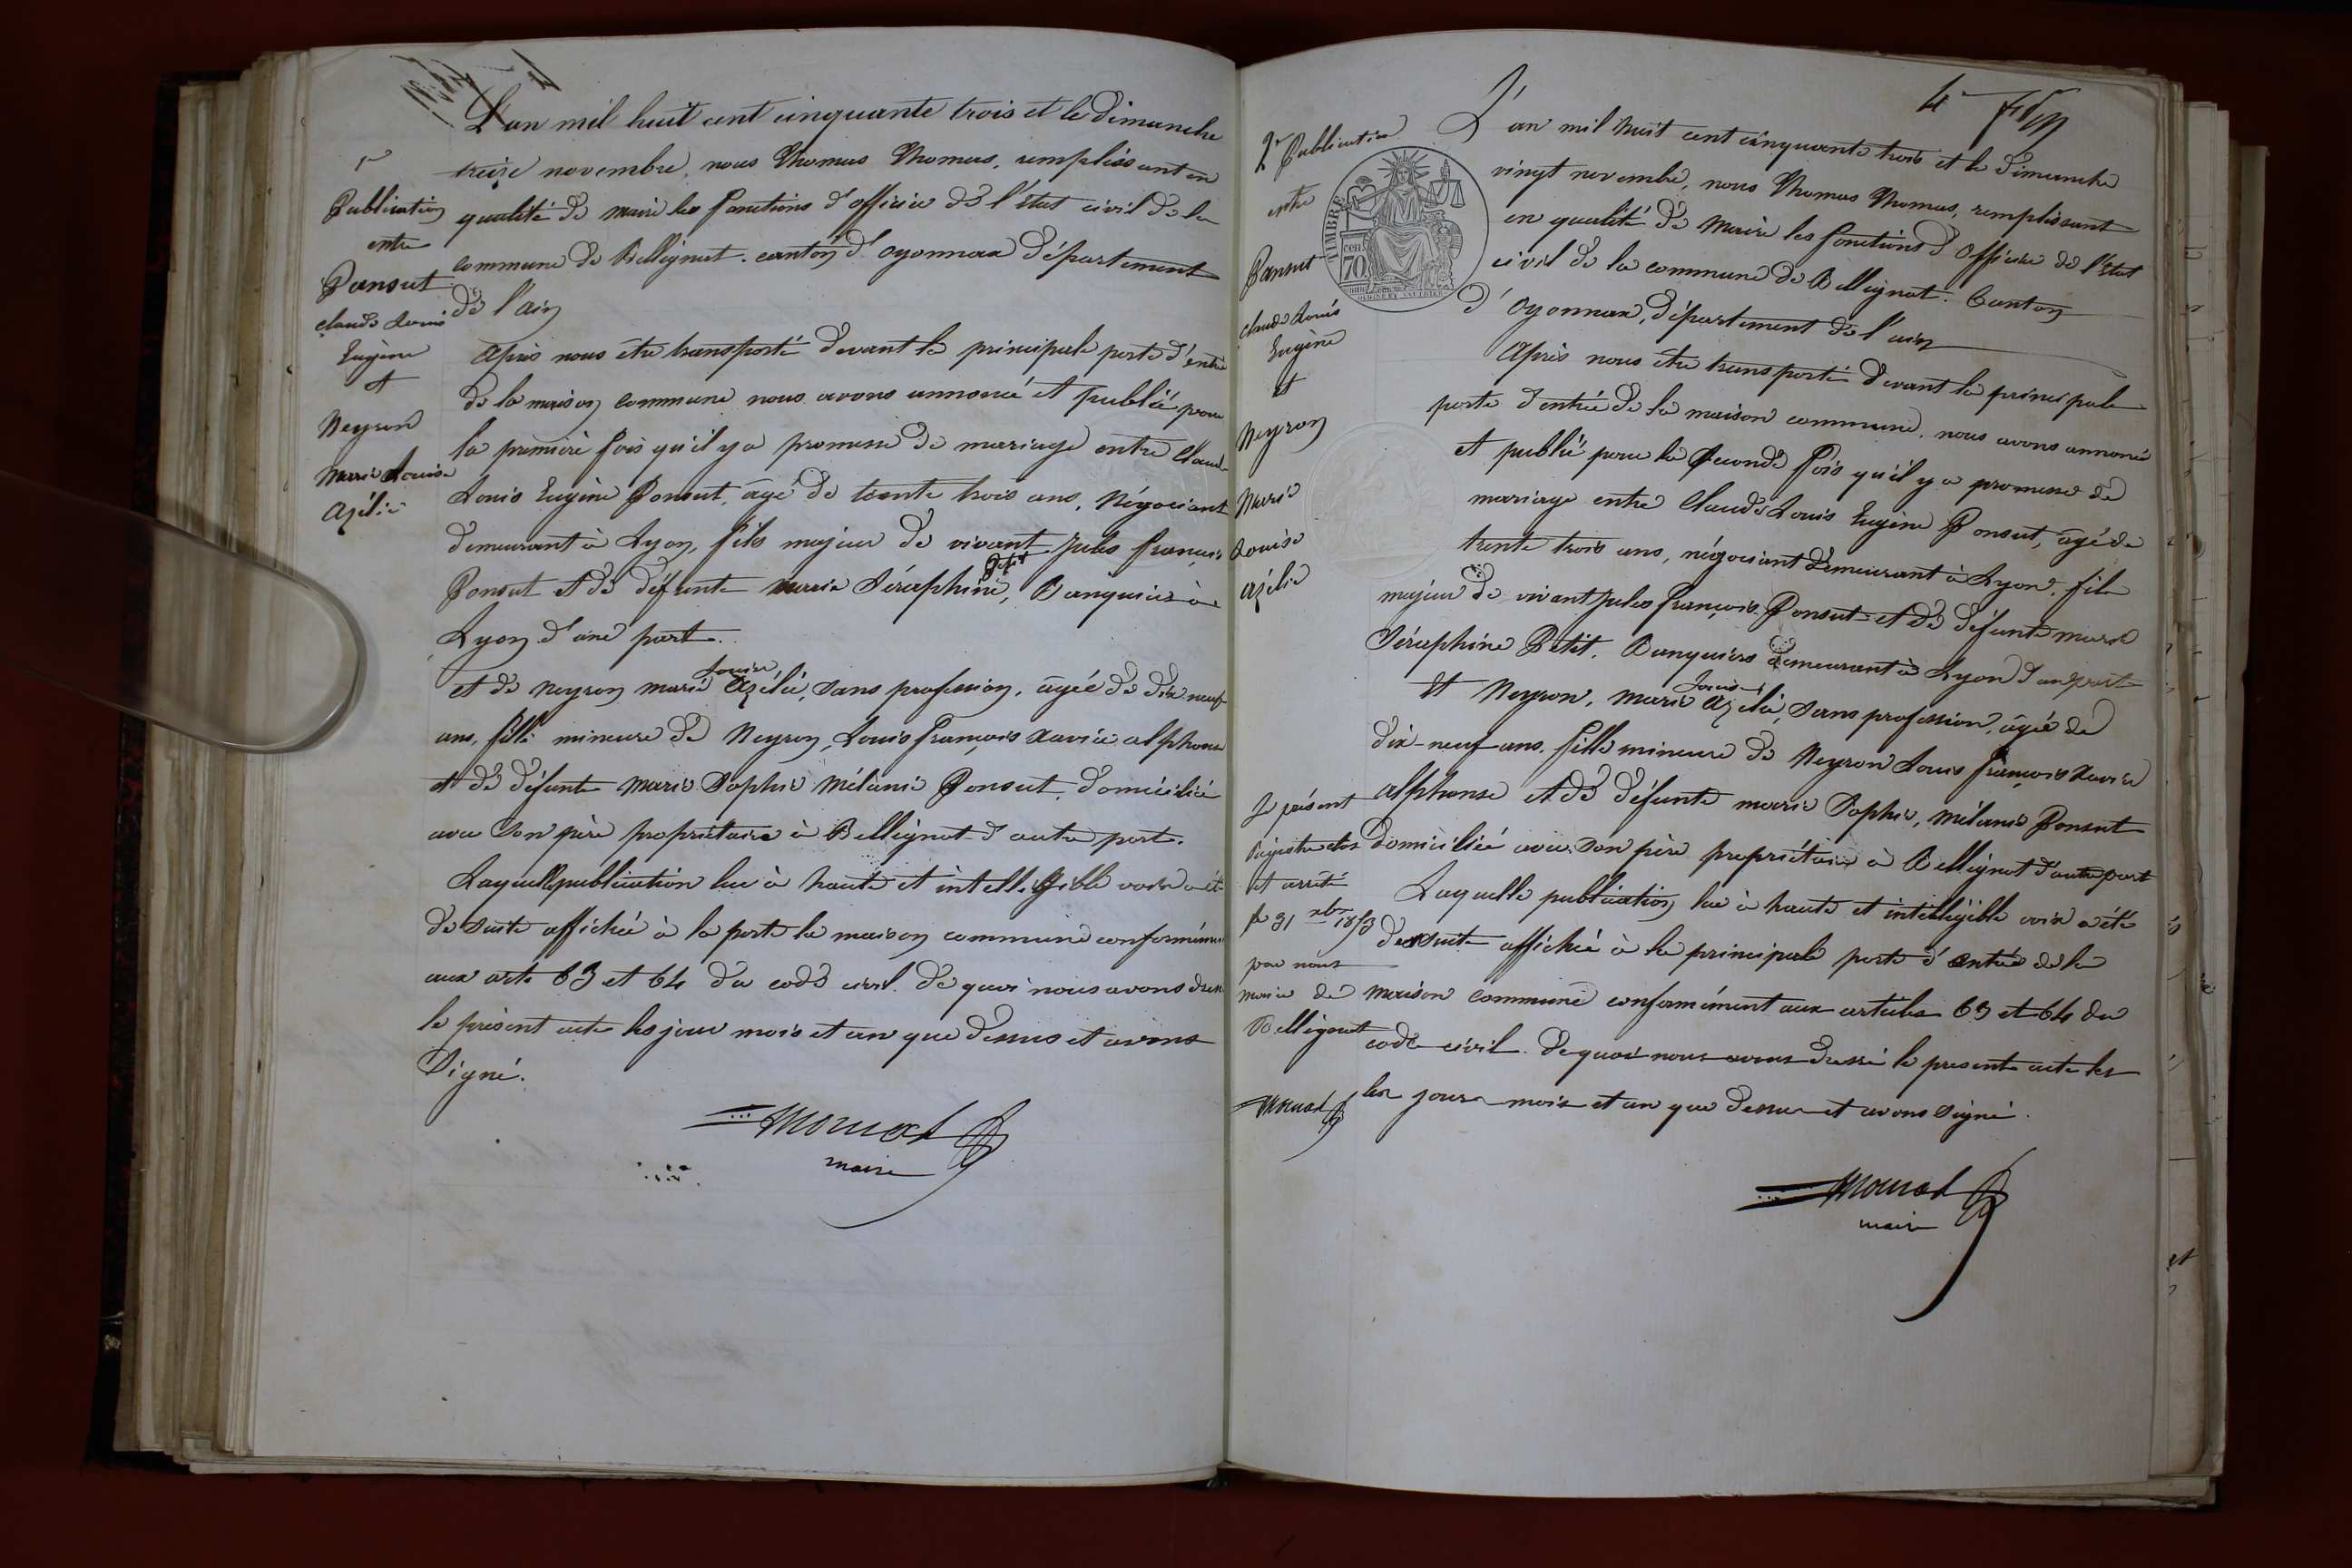 L'an mil huit cent cinquante trois et le Dimanche
treize novembre, nous Thomas Thomas, remplissant en
qualité de maire les fonctions d'officier de l'état civil de la
commune de Bellignat. canton d'oyonnax département
de l'ain
1re
Publication
entre
Ponsut
claude Louis
Eugène
et
Neyron
Marie Louise
Azélie
Après nous être transporté devant la principale porte d'entrée
de la maison commune nous avons annoncé et publié pour
la première fois qu'il y a promesse de mariage entre Claude
Louis Eugène Ponsut, âgé de trente trois ans, Négociant
demeurant à Lyon, fils majeur de vivant Jules françois
Petit
Ponsut et de défunte marie Séraphine, Banquier à
Lyon d'une part.
Louise
et de Neyron marie Azélie, Sans profession, âgée de dix neuf
ans, fille mineure de Neyron, Louis françois Xavier alphonse
et de défunte Marie Sophie Mélanie Ponsut, domiciliée
avec Son père propriétaire à Bellignat d'autre part.
Laquelle publication lue à haute et intelligible voix a été
de Suite affichée à la porte la maison commune conformément
aux arts 63 et 64 du code civil. De quoi nous avons dressé
le présent acte les jour mois et an que dessus et avons
Signé.
maire
4
2e Publication
entre
Ponsut
Claude Louis
Eugène
et
Neyron
Marie
Louise
Azélie
TIMBRE
cen
70
L'an mil huit cent cinquante trois et le Dimanche
vingt novembre, nous Thomas Thomas, remplissant
en qualité de Maire les fonctions d'Officier de l'Etat
civil de la commune de Bellignat. Canton
d'Oyonnax, département de l'ain
Après nous être transporté devant la principale
porte d'entrée de la maison commune, nous avons annoncé
et publié pour la Seconde fois qu'il y a promesse de
mariage entre Claude Louis Eugène Ponsut, âgé de
trente trois ans, négociant demeurant à Lyon, fils
majeur de vivant Jules françois Ponsut et de défunte marie
Séraphine Petit. Banquiers demeurant à Lyon d'une part
Louise
Et Neyron, Marie Azélie, Sans profession, âgée de
dix-neuf ans. fille mineure de Neyron Louis françois Xavier
alphonse et de défunte marie Sophie, Mélanie Ponsut
domiciliée avec Son père propriétaire à Bellignat d'autre part
Laquelle publication lue à haute et intelligible voix a été
de suite affichée à la principale porte d'entrée de la
maison commune conformément aux articles 63 et 64 du
code civil. De quoi nous avons dressé le present acte les
les jour mois et an que dessus et avons Signé.
Le présent
Registre clos
et arrêté
le 31 xbre 1853
par nous
maire de
Bellignat
maire